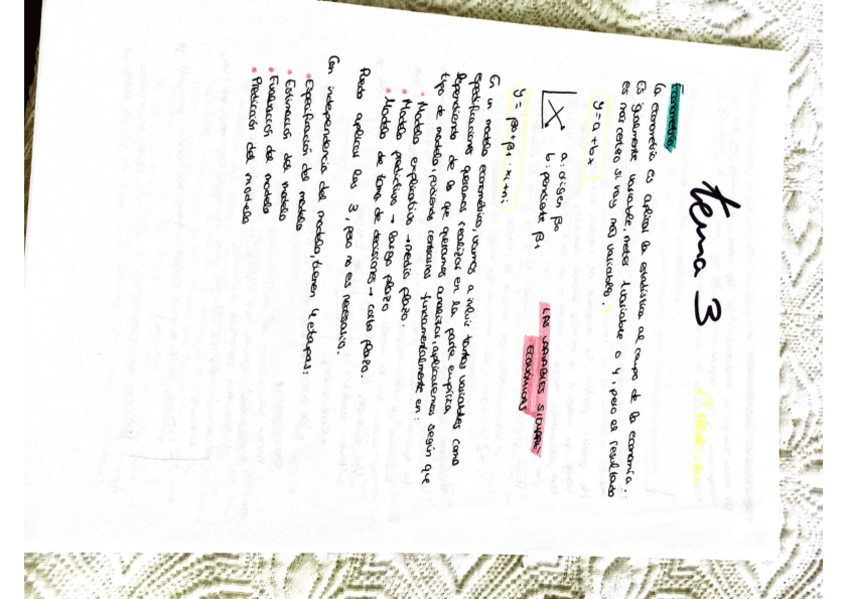 tema 3
1º PARCIAL
Econometría
La econometría es aplicar la estadística al campo de la economía.
Es igualmente variable, meter 1 variable o 4, pero el resultado
es más certero si hay más variables.
y = a + bx
a: origen β0
b: pendiente β1
LAS VARIABLES SIEMPRE
ECONÓMICAS
y = β0 + β1 · xi + ni
En un modelo econométrico, vamos a incluir tantas variables como
especificaciones queramos realizar en la parte empírica
dependiendo de lo que queramos analizar, aplicaremos según que
tipo de modelo, podemos centrarnos fundamentalmente en:
• Modelo explicativo → medio plazo.
• Modelo predictivo → largo plazo
• Modelo de toma de decisiones → corto plazo.
Puedo aplicar los 3, pero no es necesario.
Con independencia del modelo, tienen 4 etapas:
• Especificación del modelo
• Estimación del modelo
• Evaluación del modelo
• Predicción del modelo